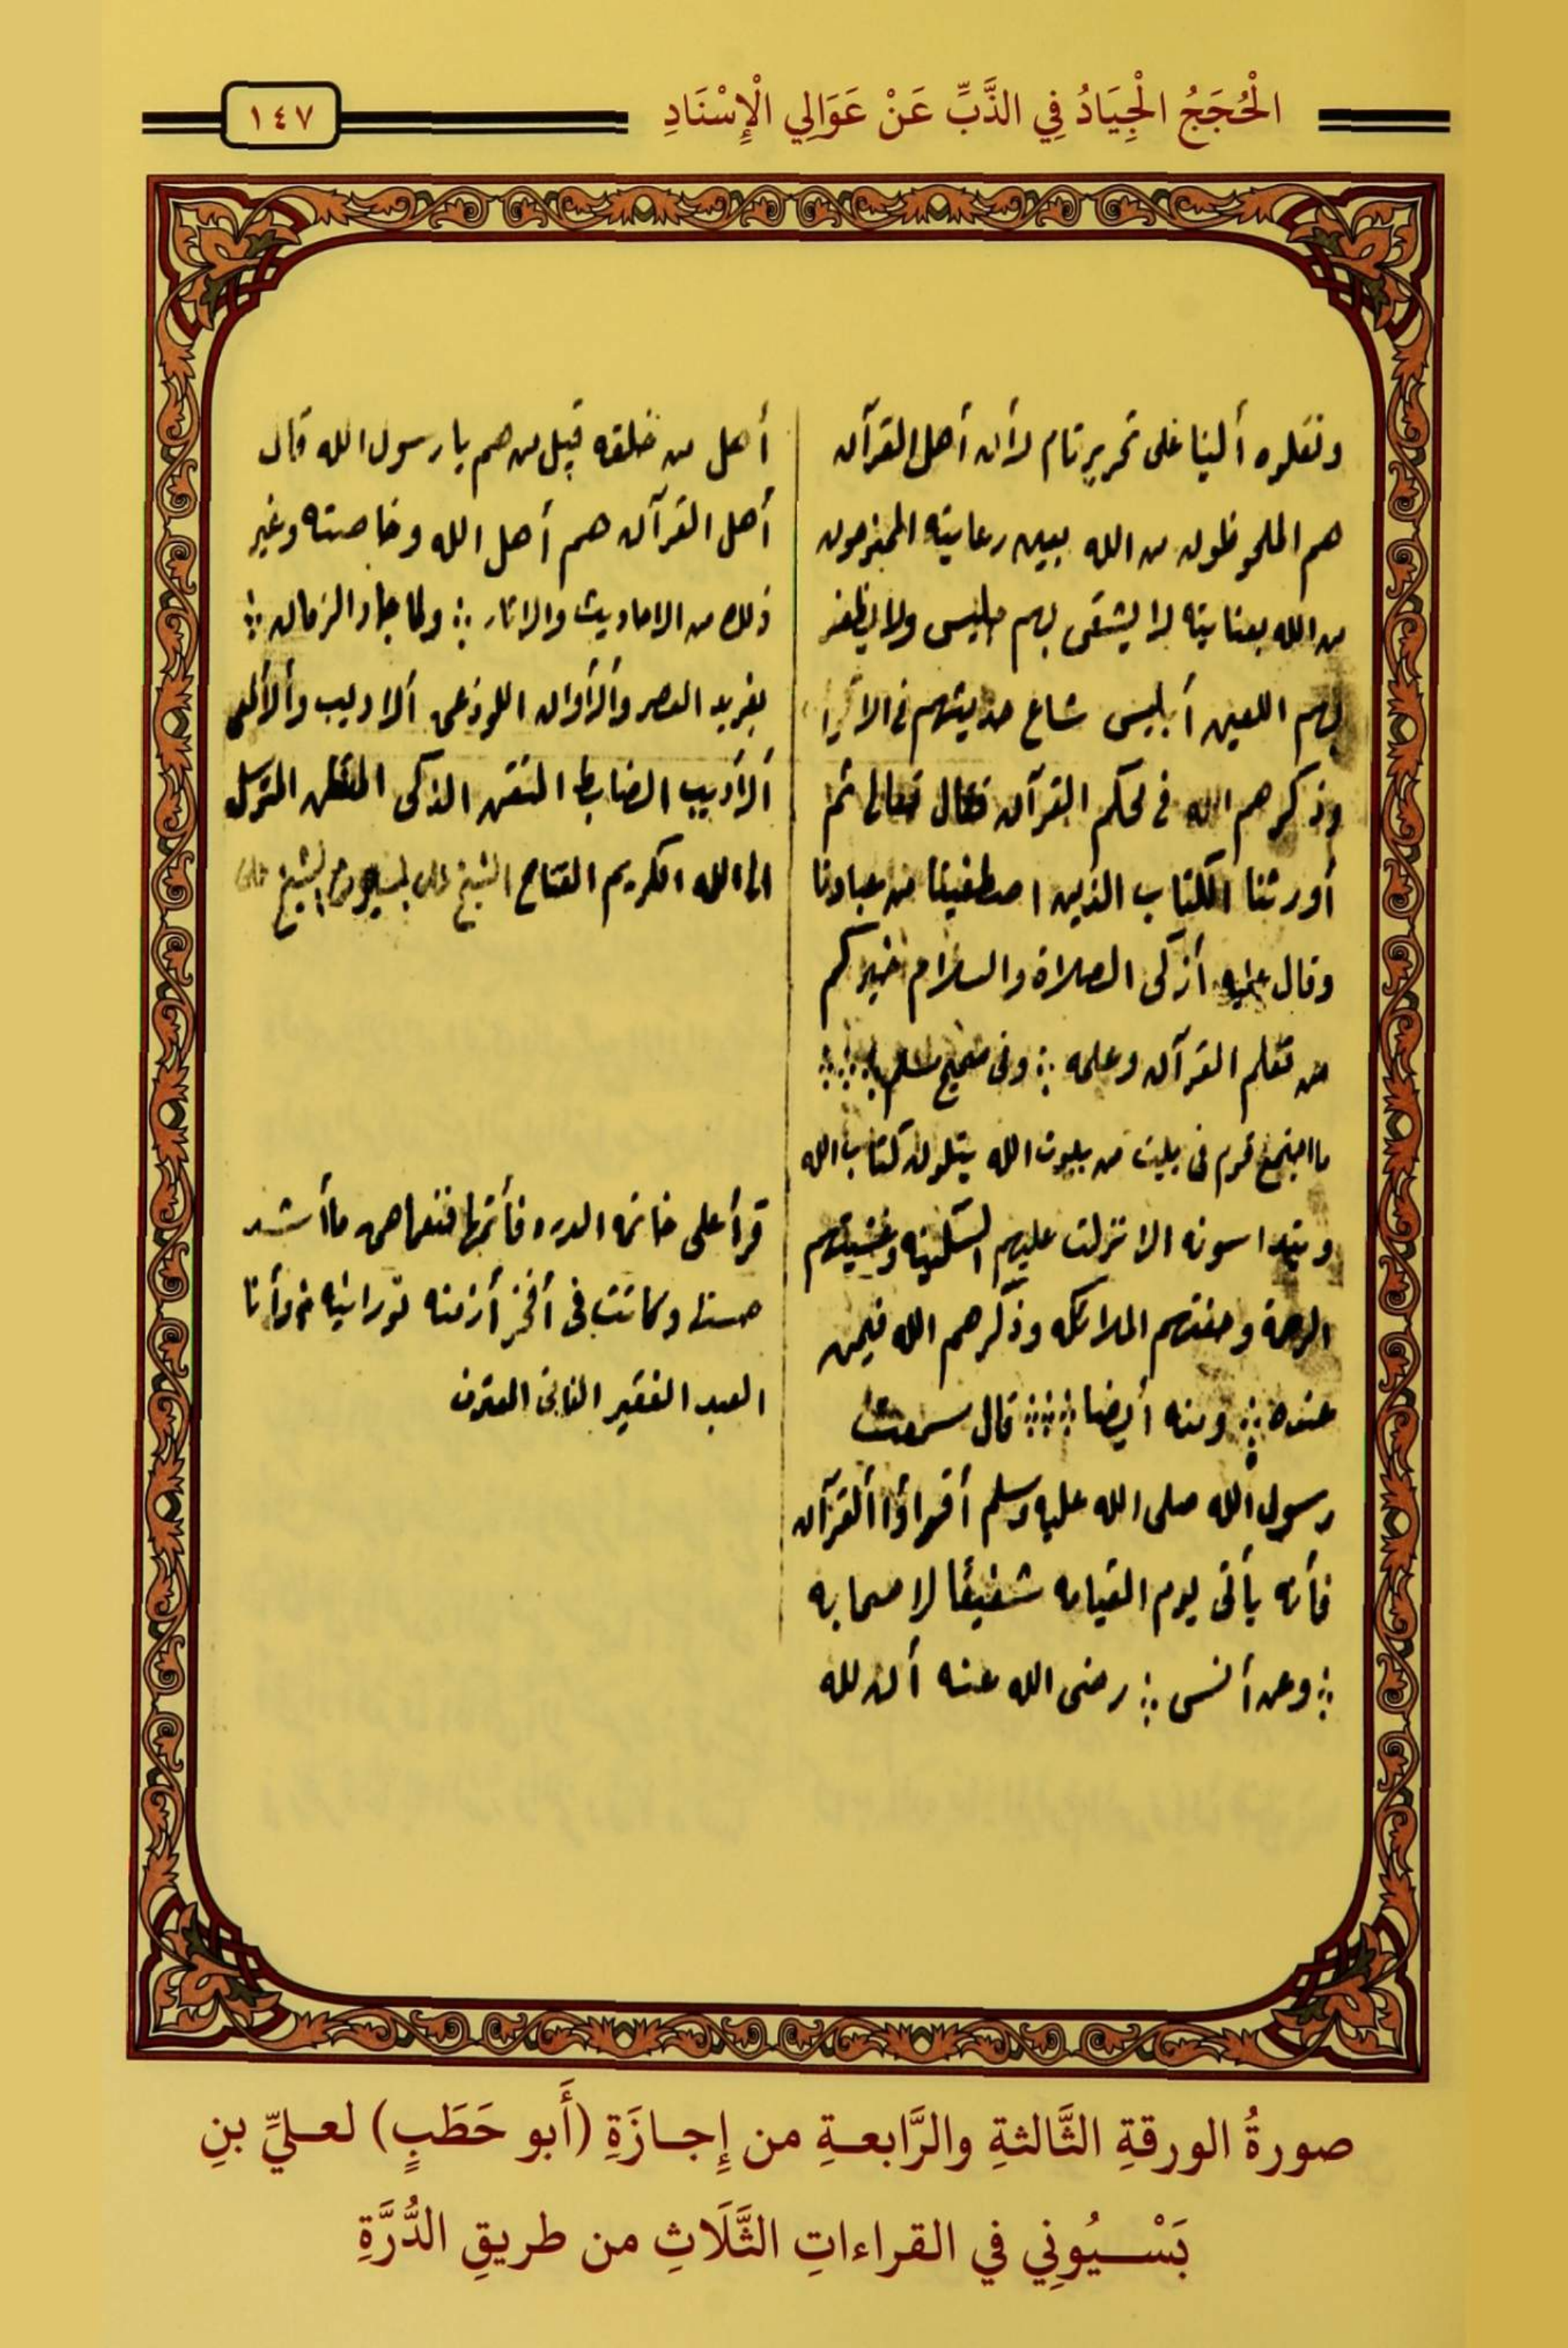 الْحُجَجُ الْجِيَادُ فِي الذَّبِّ عَنْ عَوَالِي الْإِسْنَادِ
١٤٧
ونقلوه ألينا على تحرير تام لأن أهل القرآن
هم الملحوظون من الله بعين رعايته
من الله بعنايته لا يشقى بهم جليس ولا يظفر
بهم اللعين أبليس شاع حديثهم فى
وذكرهم الله فى محكم القرآن فقال تعالى ثم
أورثنا الكتاب الذين اصطفينا من عبادنا
وقال عليه أزكى الصلاة والسلام خيركم
من تعلم القرآن وعلمه ؞ وفى صحيح مسلم ؞؞؞
ما اجتمع قوم فى بيت من بيوت الله يتلون كتاب الله
ويتدا سونه الا نزلت عليهم السكينه وغشيتهم
الرحمة وحفتهم الملائكه وذكرهم الله فيمن
عنده ؞ ومنه أيضا ؞؞؞ قال سمعت
رسول الله صلى الله عليه وسلم أقراؤا ألقرآن
فأنه يأتى يوم القيامه شفيعًا لاصحابه
؞ وعن أنس ؞ رضى الله عنه أن لله
أهل من خلقه قيل من هم يا رسول الله قال
أهل القرآن هم أهل الله وخاصته وغير
ذلك من الاحاديث والاثار ؞ ولما جاد الزمان ؞
بفريد العصر وألأوان اللوذعى ألاديب وألألمعى
ألأديب الضابط المتقن الذكى المتوسل
الى الله الكريم الفتاح الشيخ على بسيونى الشيخ على
قرأ على خاتمة الدره فأتمها
حسنا وكانت فى أفخر أزمنه نورانيه وأنا
العبد الفقير الفانى المعترف
صورةُ الورقةِ الثَّالثةِ والرَّابعـةِ من إِجـازَةِ (أَبو حَطَبٍ) لعـليِّ بنِ
بَسْـيُونِي في القراءاتِ الثَّلَاثِ من طريقِ الدُّرَّةِ